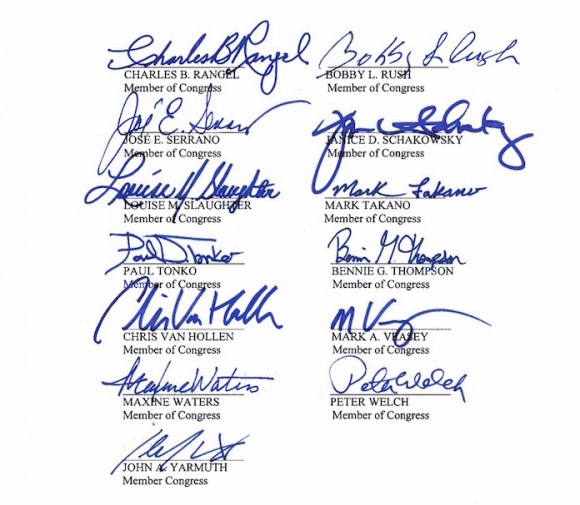 Charles B Rangel
CHARLES B. RANGEL
Member of Congress
Bobby L Rush
BOBBY L. RUSH
Member of Congress
José E. Serrano
JOSÉ E. SERRANO
Member of Congress
JANICE D. SCHAKOWSKY
Member of Congress
Louise M Slaughter
LOUISE M. SLAUGHTER
Member of Congress
Mark Takano
MARK TAKANO
Member of Congress
Paul D. Tonko
PAUL TONKO
Member of Congress
Bennie G. Thompson
BENNIE G. THOMPSON
Member of Congress
Chris Van Hollen
CHRIS VAN HOLLEN
Member of Congress
M Veasey
MARK A. VEASEY
Member of Congress
Maxine Waters
MAXINE WATERS
Member of Congress
Peter Welch
PETER WELCH
Member of Congress
JOHN A. YARMUTH
Member Congress